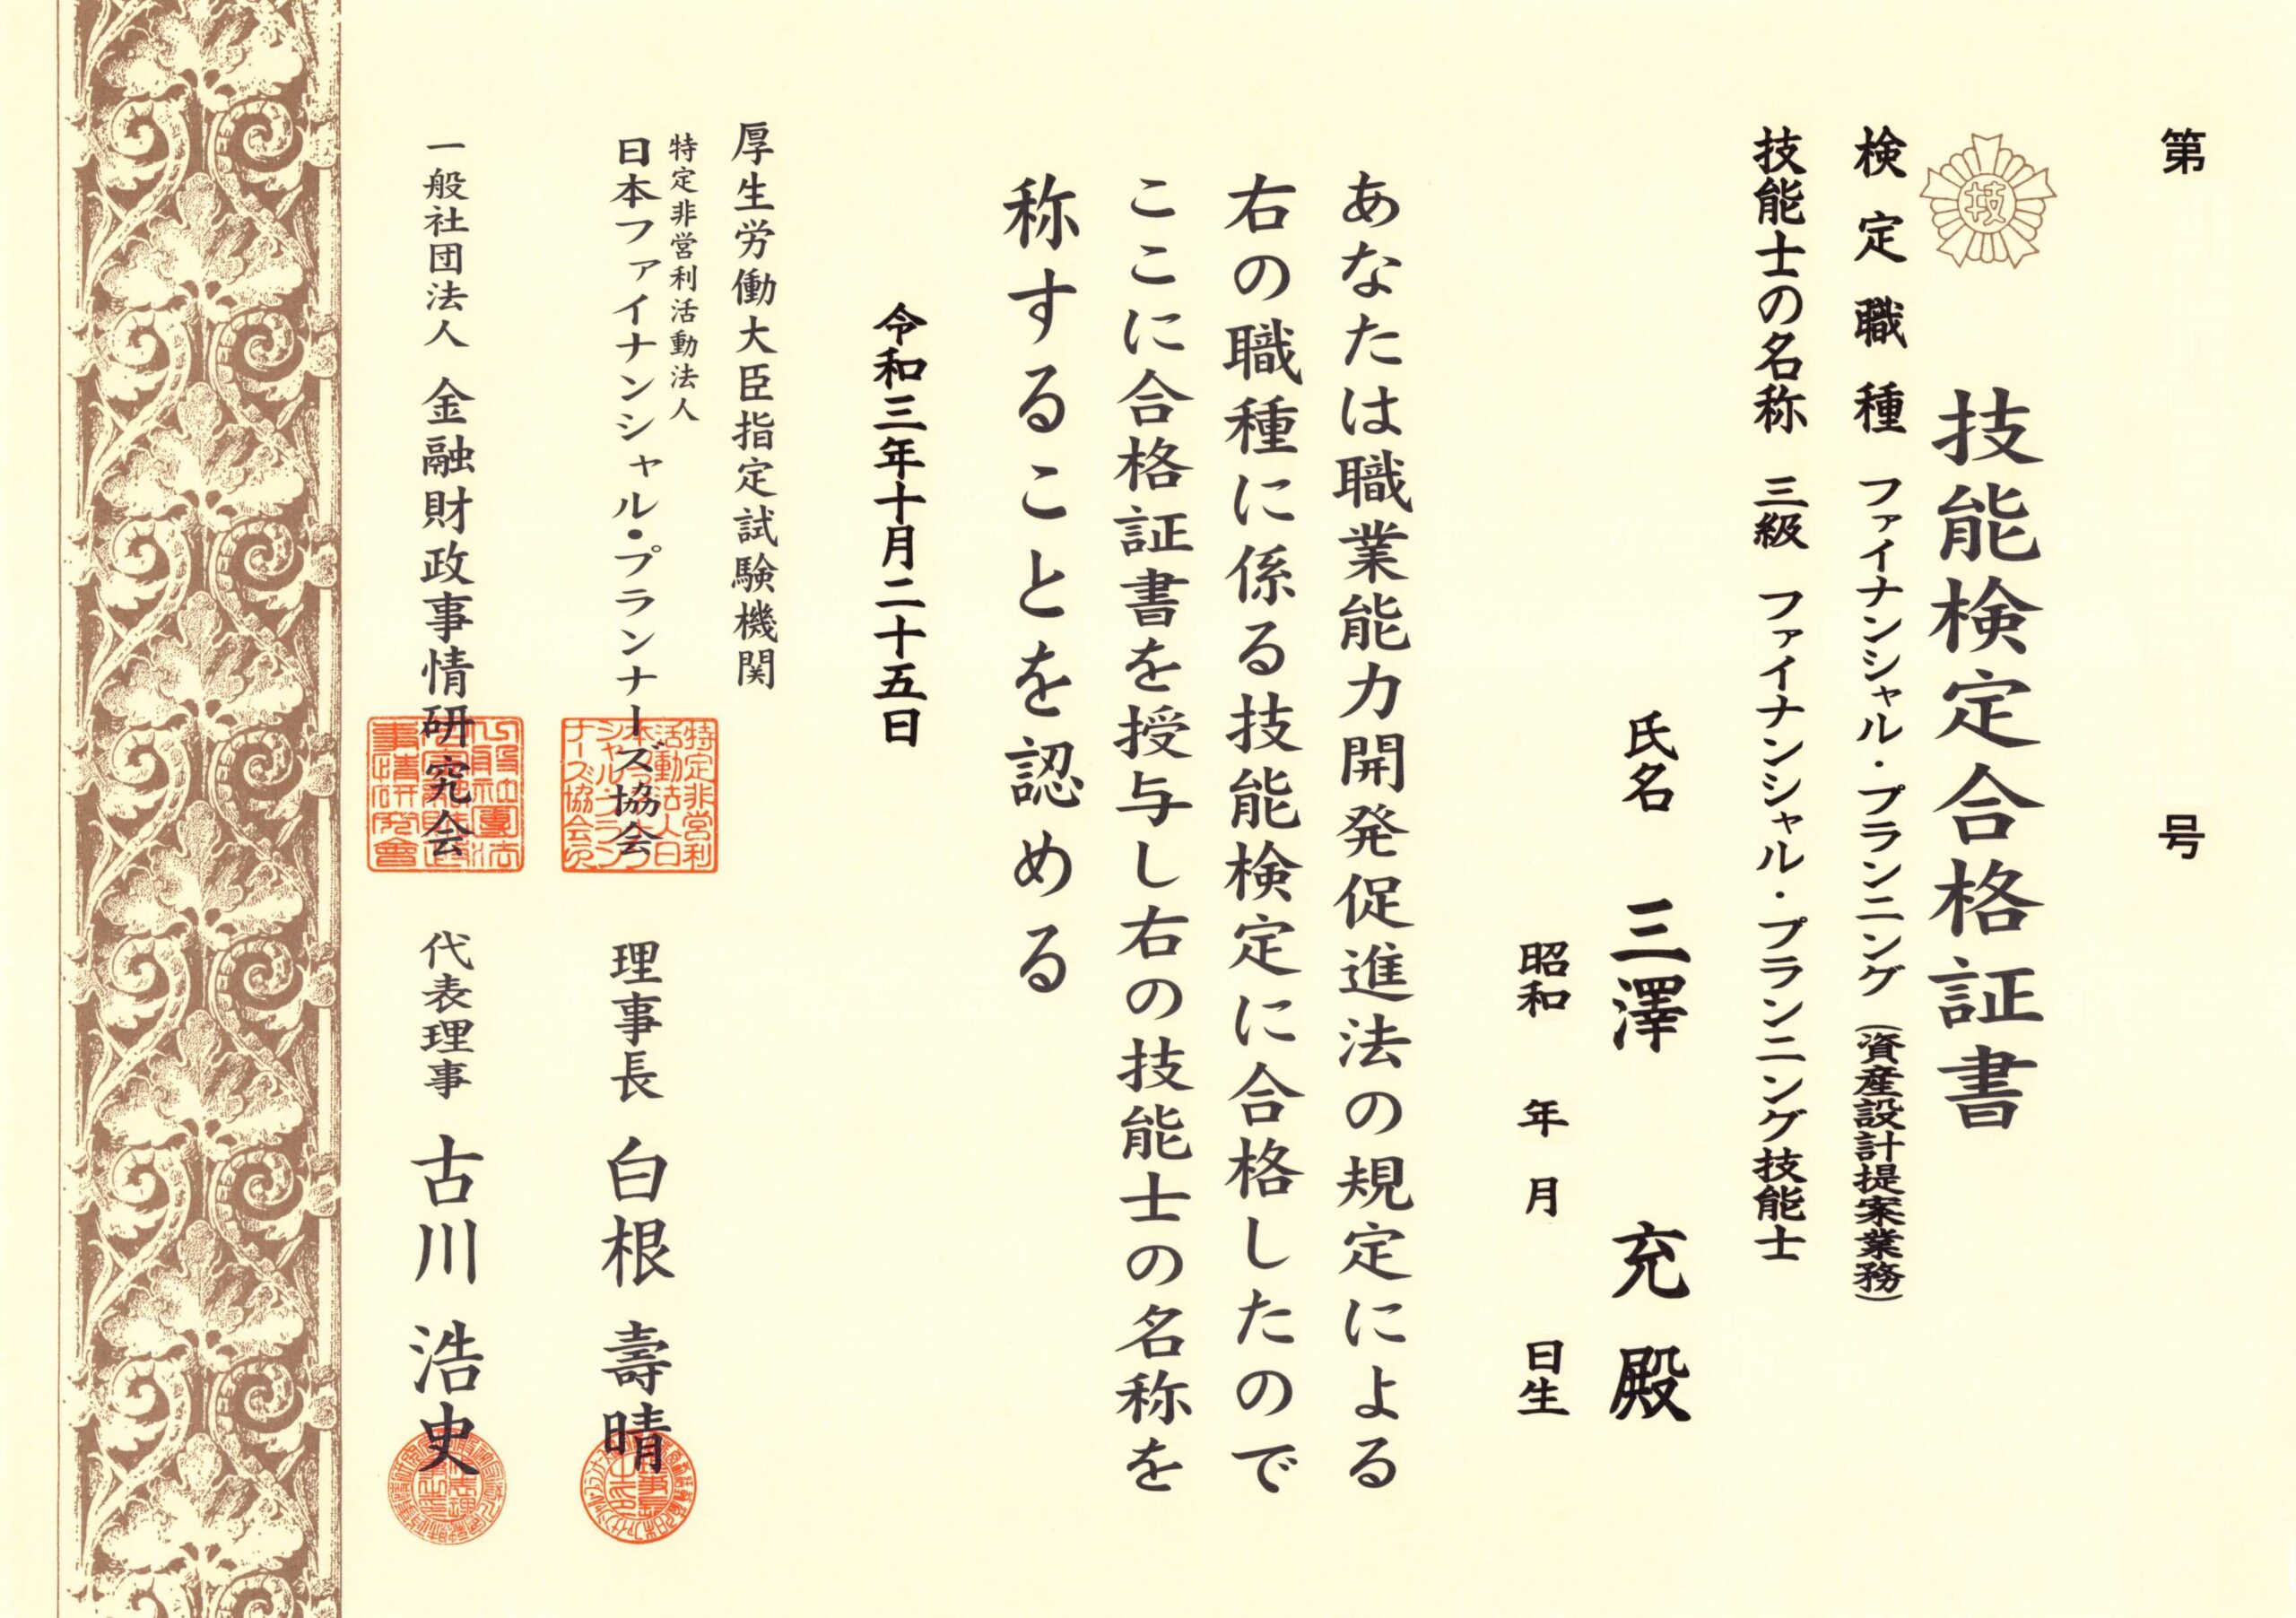 第 号
技能検定合格証書
技
検定職種 ファイナンシャル・プランニング (資産設計提案業務)
技能士の名称 三級 ファイナンシャル・プランニング技能士
氏名 三澤 充 殿
昭和 年 月 日生
あなたは職業能力開発促進法の規定による
右の職種に係る技能検定に合格したので
ここに合格証書を授与し右の技能士の名称を
称することを認める
令和三年十月二十五日
厚生労働大臣指定試験機関
特定非営利活動法人
日本ファイナンシャル・プランナーズ協会 理事長 白根 壽晴
一般社団法人 金融財政事情研究会 代表理事 古川 浩史